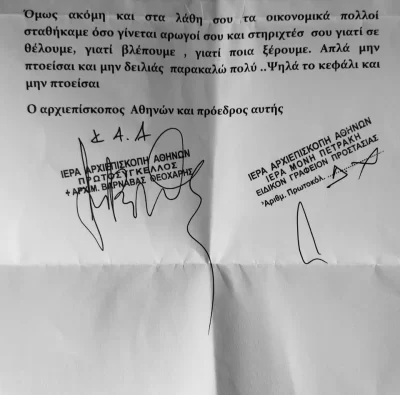 Όμως ακόμη και στα λάθη σου τα οικονομικά πολλοί
σταθήκαμε όσο γίνεται αρωγοί σου και στηριχτές σου γιατί σε
θέλουμε, γιατί βλέπουμε , γιατί ποια ξέρουμε. Απλά μην
πτοείσαι και μην δειλιάς παρακαλώ πολύ ..Ψηλά το κεφάλι και
μην πτοείσαι
Ο αρχιεπίσκοπος Αθηνών και πρόεδρος αυτής
& Α. Α
ΙΕΡΑ ΑΡΧΙΕΠΙΣΚΟΠΗ ΑΘΗΝΩΝ
ΠΡΩΤΟΣΥΓΚΕΛΛΟΣ
+ ΑΡΧΙΜ. ΒΑΡΝΑΒΑΣ ΘΕΟΧΑΡΗΣ
ΙΕΡΑ ΑΡΧΙΕΠΙΣΚΟΠΗ ΑΘΗΝΩΝ
ΙΕΡΑ ΜΟΝΗ ΠΕΤΡΑΚΗ
ΕΙΔΙΚΟΝ ΓΡΑΦΕΙΟΝ ΠΡΟΣΤΑΣΙΑΣ
Ἀριθμ. Πρωτοκόλ.